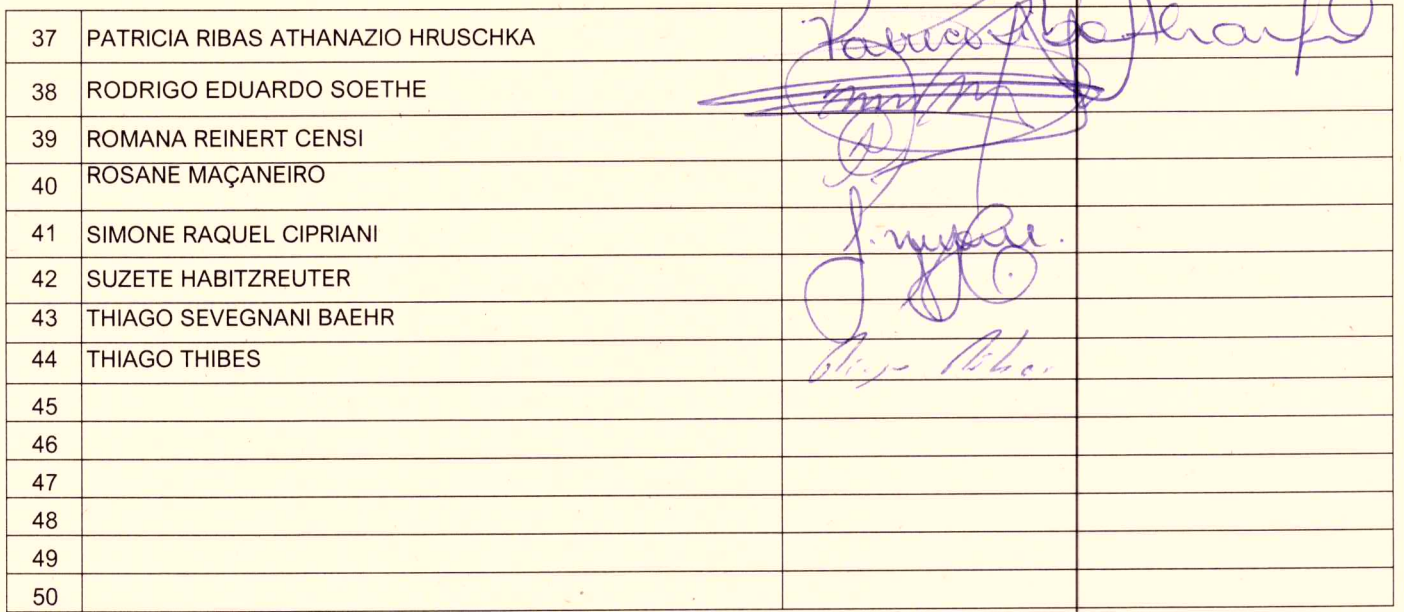 37 PATRICIA RIBAS ATHANAZIO HRUSCHKA
38 RODRIGO EDUARDO SOETHE
39 ROMANA REINERT CENSI
40 ROSANE MAÇANEIRO
41 SIMONE RAQUEL CIPRIANI
42 SUZETE HABITZREUTER
43 THIAGO SEVEGNANI BAEHR
44 THIAGO THIBES
45
46
47
48
49
50